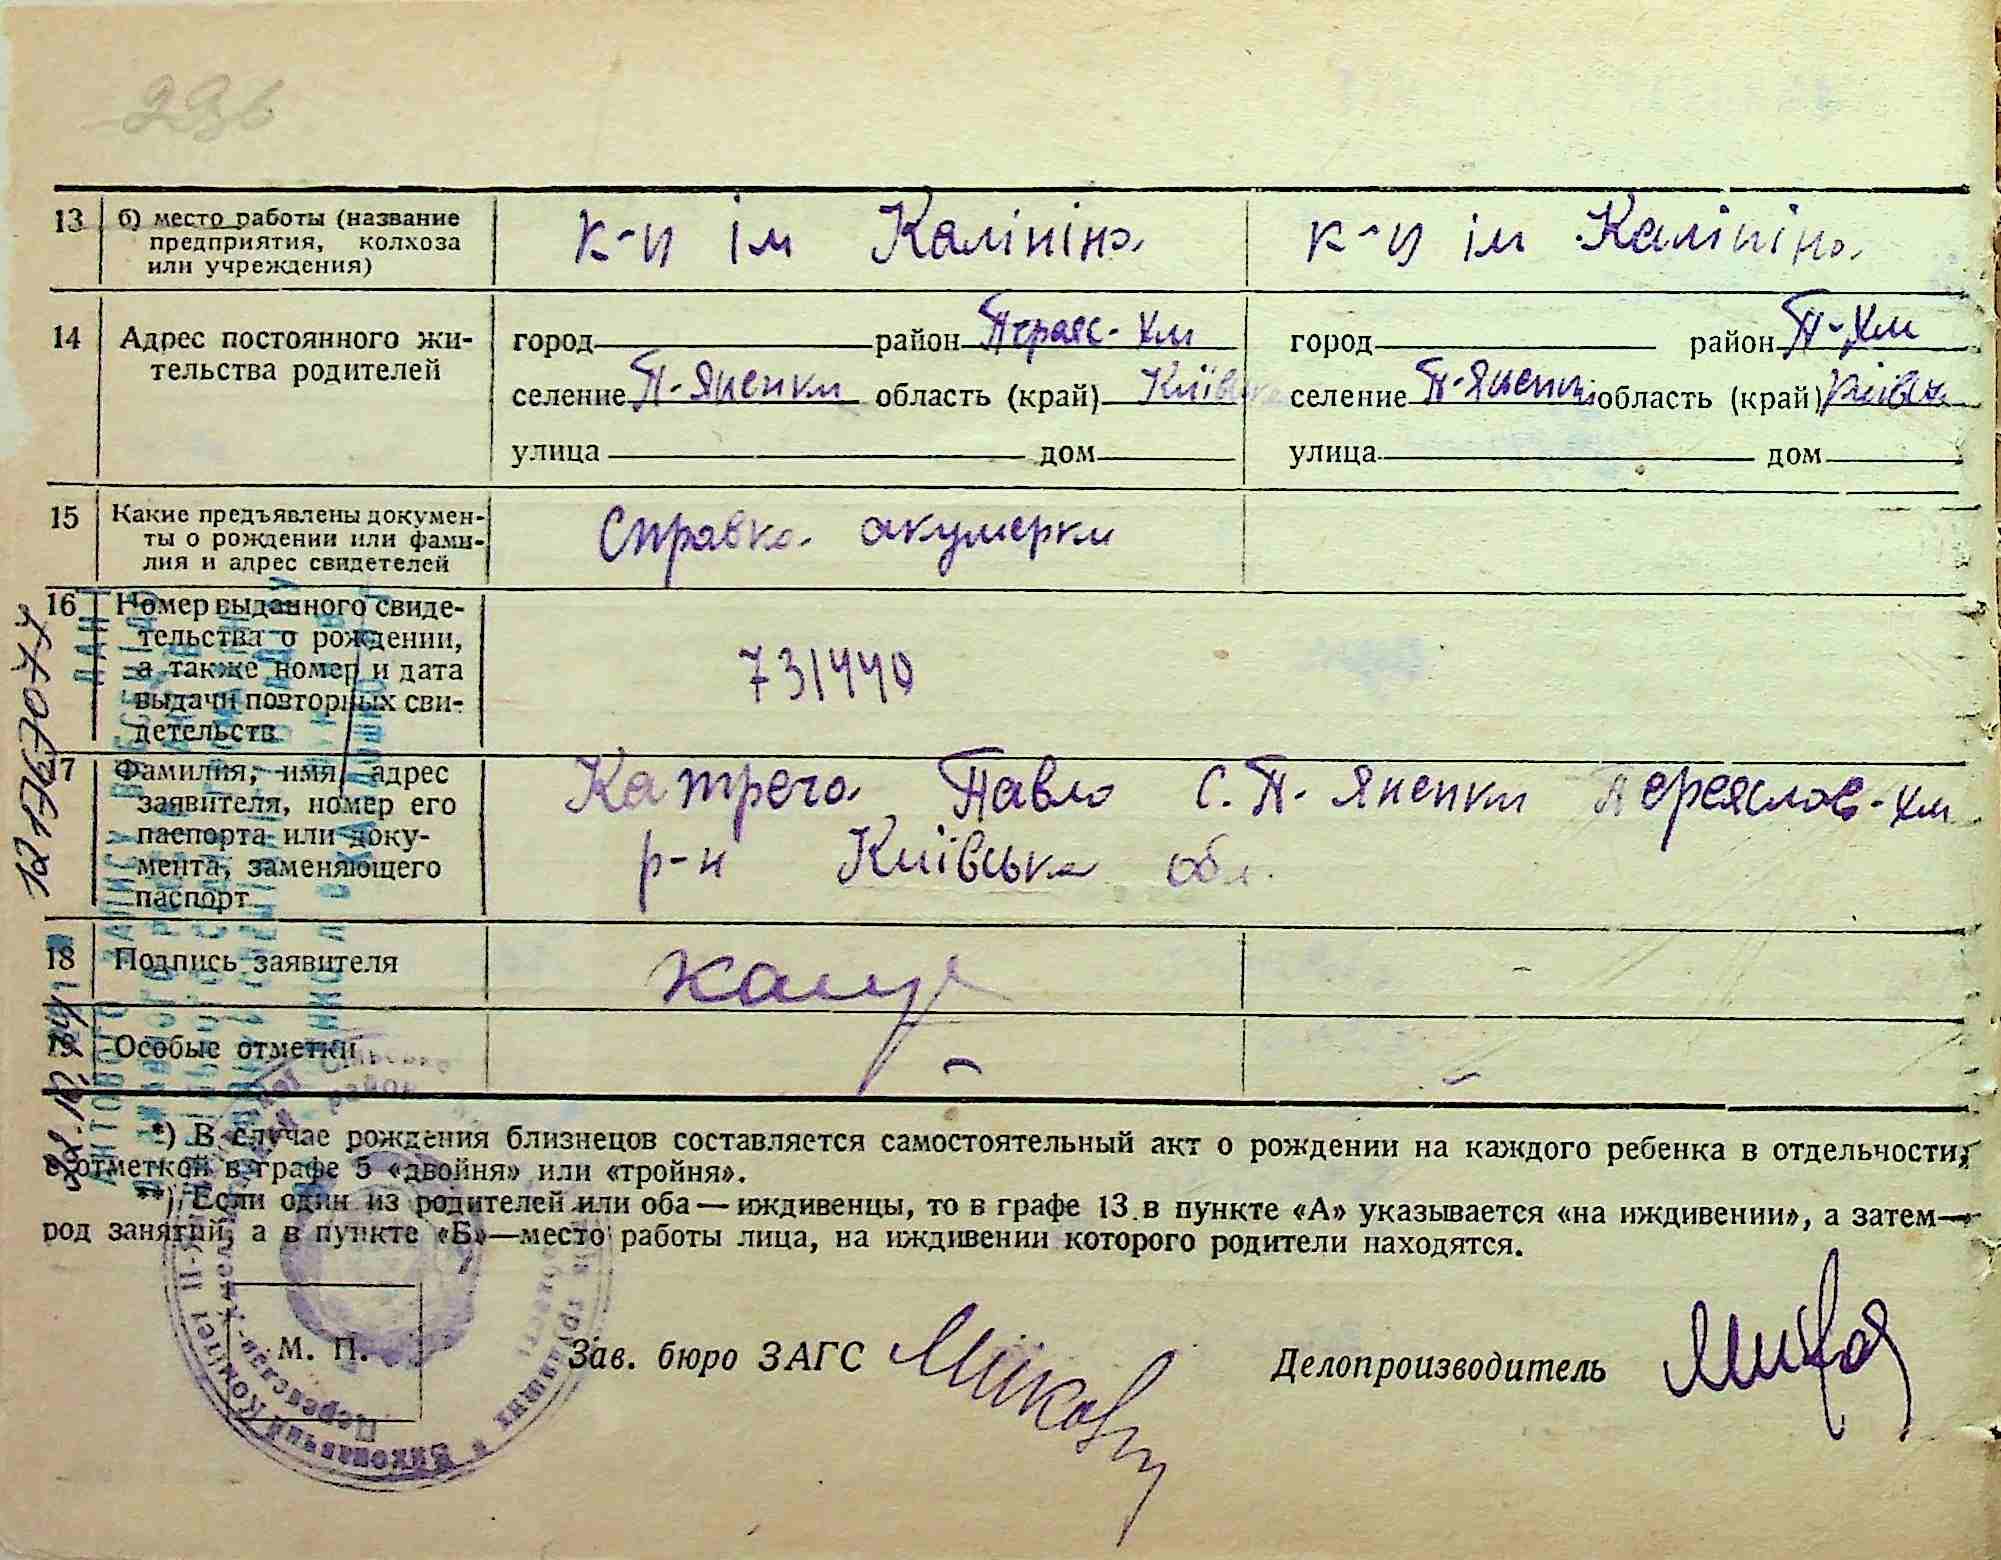 236
13 б) место работы (название предприятия, колхоза или учреждения) к-п ім Калініна к-п ім Калініна
14 Адрес постоянного жи-
тельства родителей
город район Переяс-Хм город район П-Хм
селение П-Яненки область (край) Київська селение П-Яненки область (край) Київськ
улица дом улица дом
15 Какие предъявлены докумен-
ты о рождении или фами-
лия и адрес свидетелей
Справка акушерки
16 Номер выданного свиде-
тельства о рождении,
а также номер и дата
выдачи повторных сви-
детельств
731440
17 Фамилия, имя, адрес
заявителя, номер его
паспорта или доку-
мента, заменяющего
паспорт
Катреча Павло с. П-Яненки Переяслав-Хм
р-н Київська обл.
18 Подпись заявителя
19 Особые отметки
*) В случае рождения близнецов составляется самостоятельный акт о рождении на каждого ребенка в отдельности,
с отметкой в графе 5 «двойня» или «тройня».
**) Если один из родителей или оба — иждивенцы, то в графе 13 в пункте «А» указывается «на иждивении», а затем —
род занятий, а в пункте «Б» — место работы лица, на иждивении которого родители находятся.
М. П. Зав. бюро ЗАГС Делопроизводитель
Виконавчий Комітет